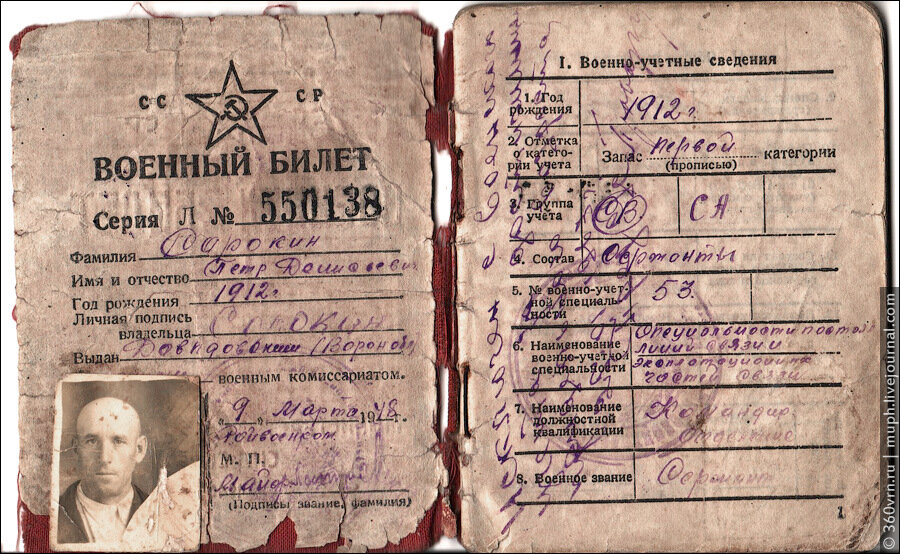 СС СР
ВОЕННЫЙ БИЛЕТ
Серия Л № 550138
Фамилия Сорокин
Имя и отчество Петр
Год рождения 1912 г.
Личная подпись
владельца Сорокин
Выдан
военным комиссариатом.
„9" Марта 1948 г.
Райвоенком
М. П.
Майор
(Подпись, звание, фамилия)
I. Военно-учетные сведения
1. Год
рождения
1912 г.
2. Отметка
о катего-
рии учета
Запас первой категории
(прописью)
3. Группа
учета
СА
4. Состав Сержанты
5. № военно-учет-
ной специаль-
ности
53.
6. Наименование
военно-учетной
специальности
Специальности
линий связи и
частей связи
7. Наименование
должностной
квалификации
Командир
отделения
8. Военное звание Сержант
1
© 360vrn.ru | muph.livejournal.com